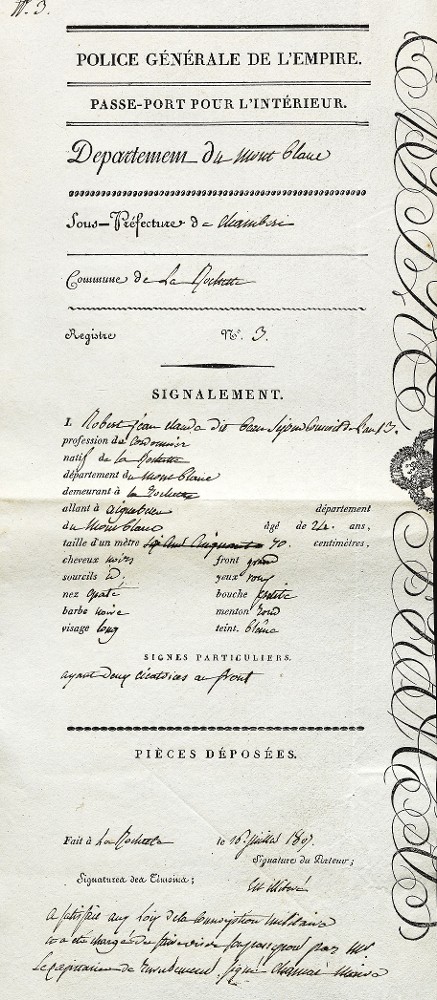 N°. 3.
POLICE GÉNÉRALE DE L'EMPIRE.
PASSE-PORT POUR L'INTÉRIEUR.
Département du mont blanc
Sous-Préfecture de chamberi
Commune de La Rochette
Registre N°. 3.
SIGNALEMENT.
I. Robert jean claude dit beau Séjour de l'an 13.
profession de Cordonnier
natif de la Rochette
département du mont blanc
demeurant à la Rochette
allant à aiguebelle département
du mont blanc âgé de 24. ans,
taille d'un mètre 70. centimètres,
cheveux noirs front grand
sourcils id. yeux roux
nez épaté bouche petite
barbe noire menton rond
visage long teint. blanc
SIGNES PARTICULIERS.
ayant deux cicatrices au front
PIÈCES DÉPOSÉES.
Fait à La Rochette le 16 juillet 1807.
Signature du Porteur;
Signatures des Témoins; est illitéré
a satisfait aux loix de la Conscription militaire
il a été chargé de faire viser passeport par Mr
le Capitaine de recrutement. Signé